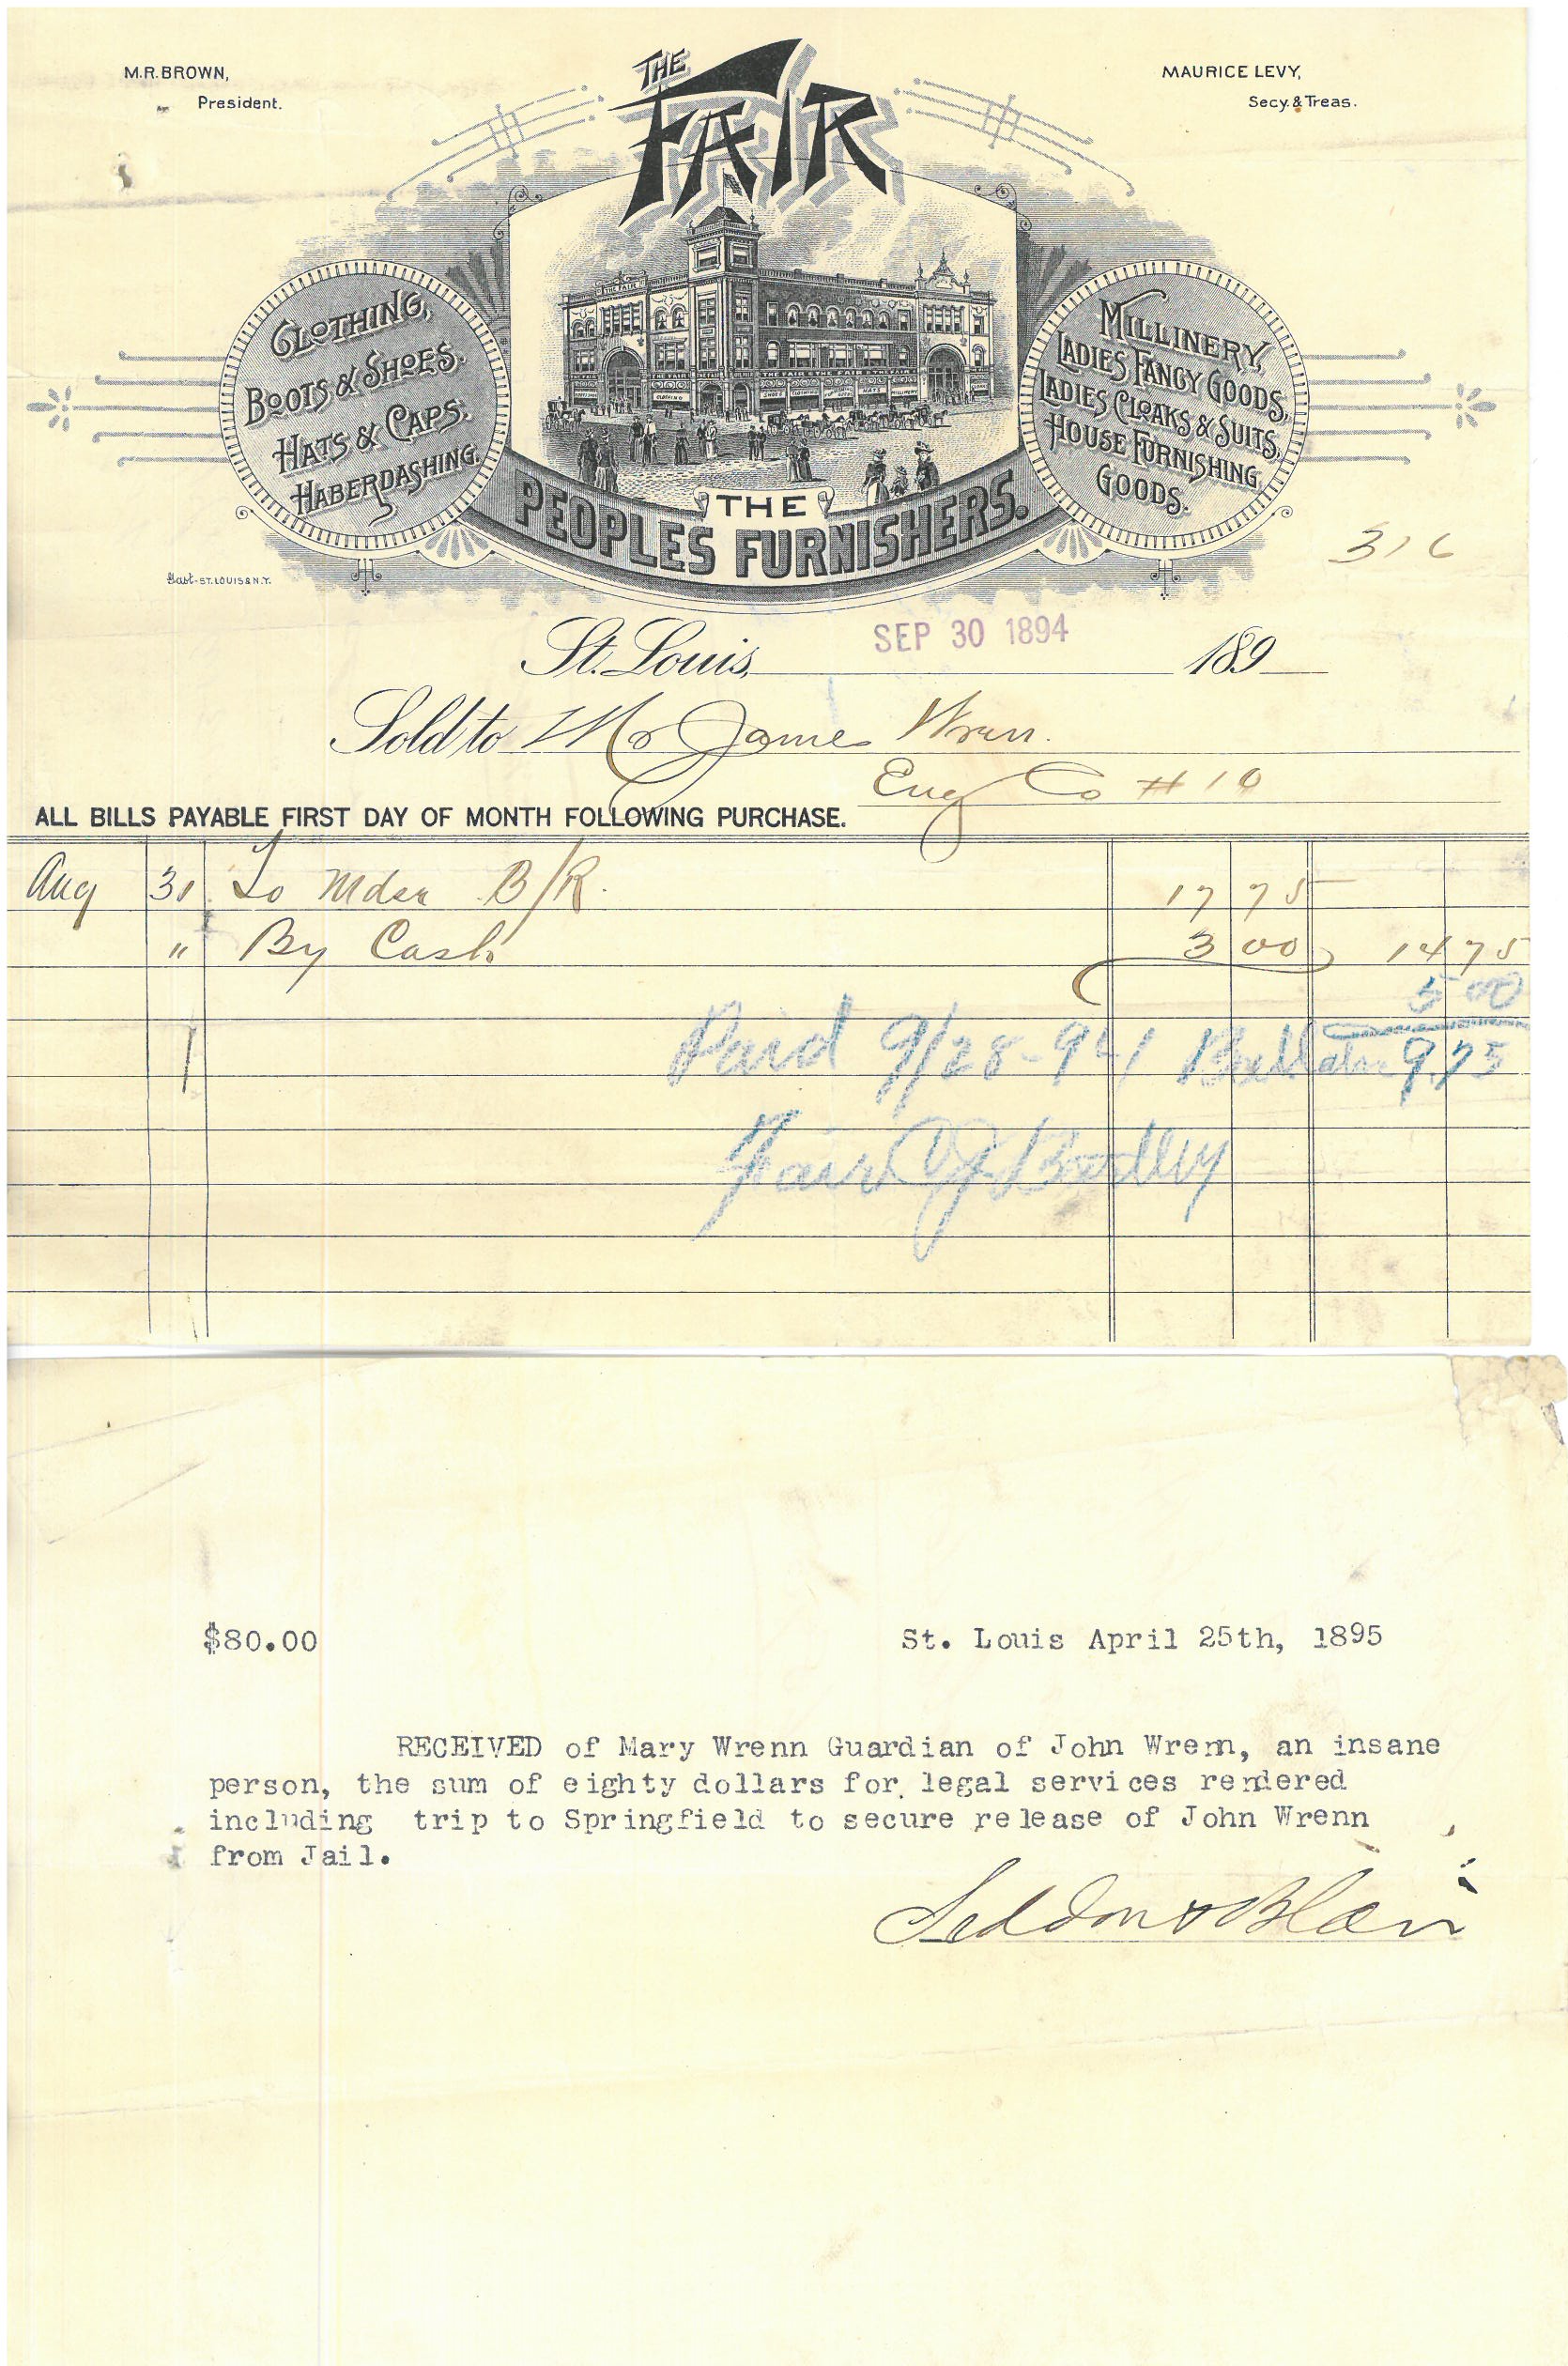 M.R. BROWN,
President.
MAURICE LEVY,
Secy. & Treas.
THE
FAIR
CLOTHING,
BOOTS & SHOES.
HATS & CAPS.
HABERDASHING.
THE FAIR
MILLINERY,
LADIES FANCY GOODS,
LADIES CLOAKS & SUITS,
HOUSE FURNISHING
GOODS.
THE
PEOPLES FURNISHERS.
316
Gast-ST. LOUIS & N.Y.
St. Louis, SEP 30 1894 189
Sold to Mr James Wren.
Eng Co # 10
ALL BILLS PAYABLE FIRST DAY OF MONTH FOLLOWING PURCHASE.
Aug 31 To Mdse B/R. 17 75
" By Cash 3 00 14 75
5 00
Paid 9/28-94 9.75
Fair
$80.00 St. Louis April 25th, 1895
RECEIVED of Mary Wrenn Guardian of John Wrenn, an insane
person, the sum of eighty dollars for legal services rendered
including trip to Springfield to secure release of John Wrenn
from Jail.
Seddon & Blair